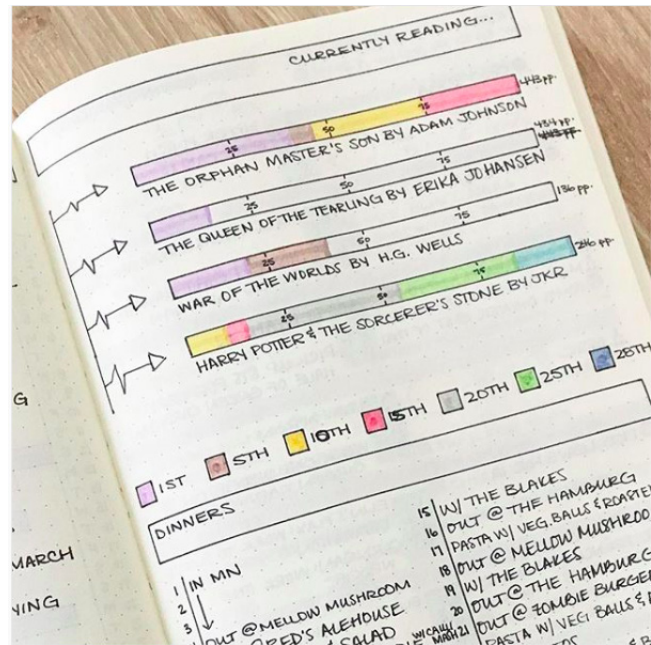 CURRENTLY READING...
443 pp.
25 50 75
THE ORPHAN MASTER'S SON BY ADAM JOHNSON
434 pp.
443 PP.
25 50 75
THE QUEEN OF THE TEARLING BY ERIKA JOHANSEN
136 pp.
25 50 75
WAR OF THE WORLDS BY H.G. WELLS
246 pp.
25 50 75
HARRY POTTER & THE SORCERER'S STONE BY JKR
1ST 5TH 10TH 15TH 20TH 25TH 28TH
DINNERS
1 IN MN
2
3
OUT @ MELLOW MUSHROOM
FRED'S ALEHOUSE
& SALAD
15 W/ THE BLAKES
16 OUT @ THE HAMBURG
17 PASTA W/ VEG. BALLS & ROASTE
18 OUT @ MELLOW MUSHROO
19 W/ THE BLAKES
20 OUT @ THE HAMBURG
21 OUT @ ZOMBIE BURGER
PASTA W/ VEG BALLS &
G
MARCH
YING